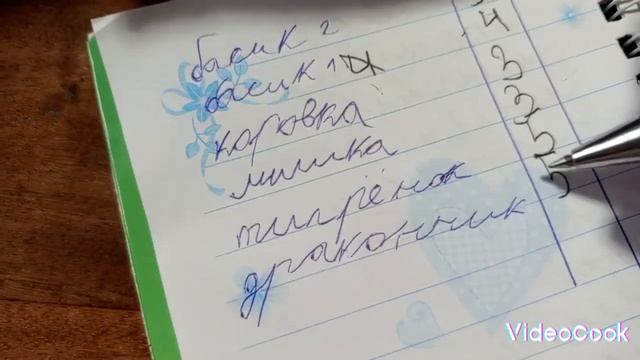 басик 2 4
басик 1 3
коровка 3
мишка 5
тигрёнок 5
дракончик
VideoCook